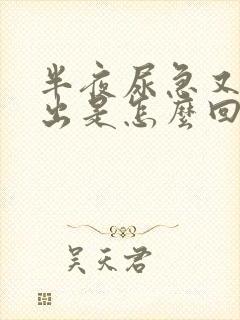 半夜尿急又
出是怎麼回
吴天君